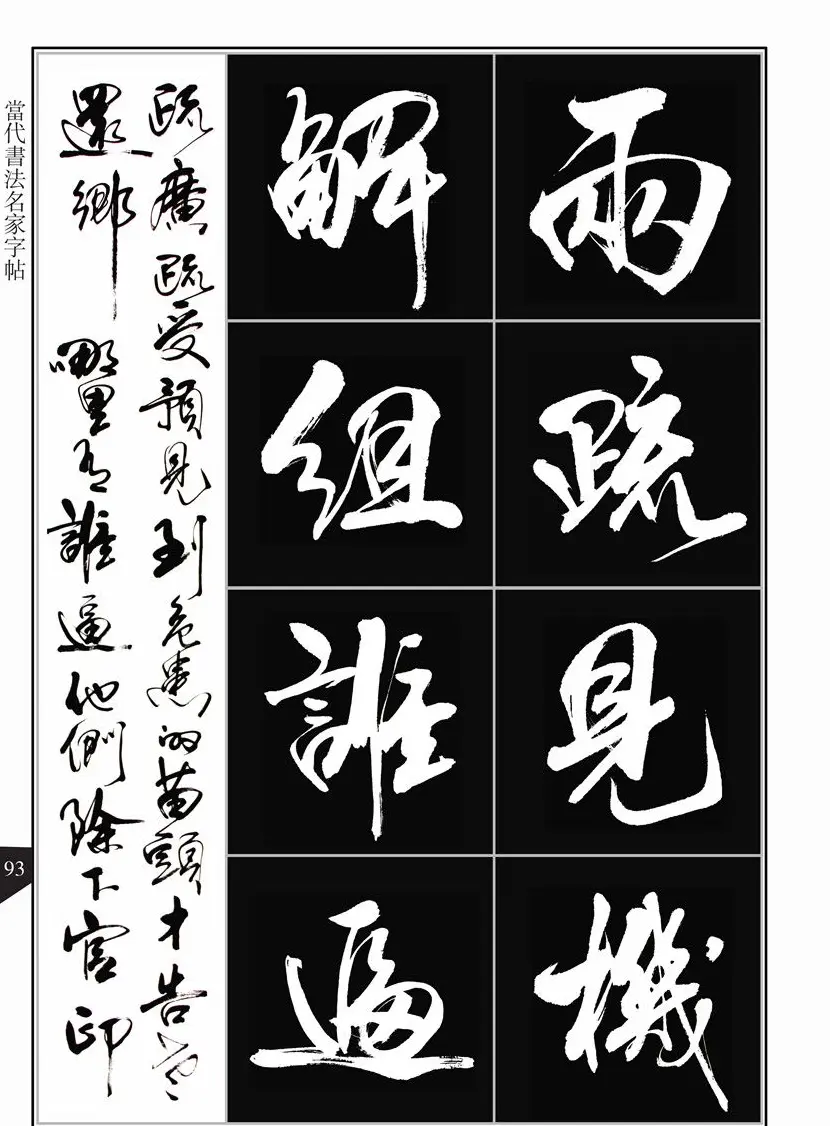 兩疏見機
解組誰逼
疏廣疏受預見到危患的苗頭才告老
還鄉 哪里有誰逼他們除下官印
當代書法名家字帖
93